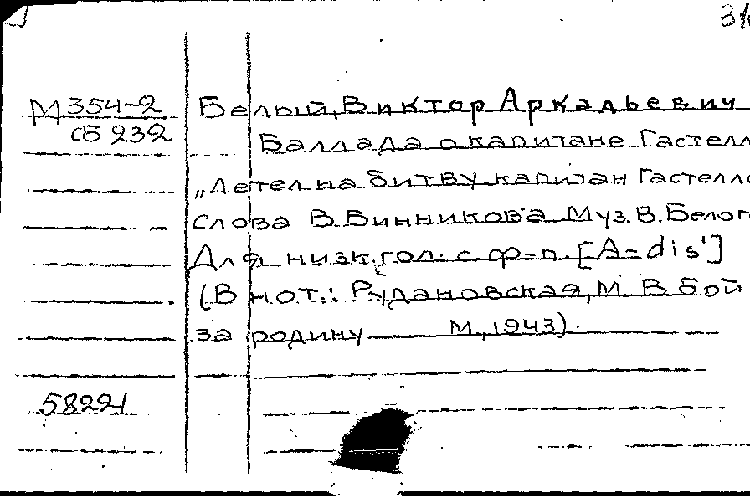 М 354-2
сб 232
Белый, Виктор Аркадьевич
Баллада о капитане Гастелл
„Летел на битву капитан Гастелло
Слова В. Винникова. Муз. В. Белог
Для низк. гол. с ф-п. [A-dis']
(В нот.: Рудановская, М. В бой
за родину М., 1943).
58221